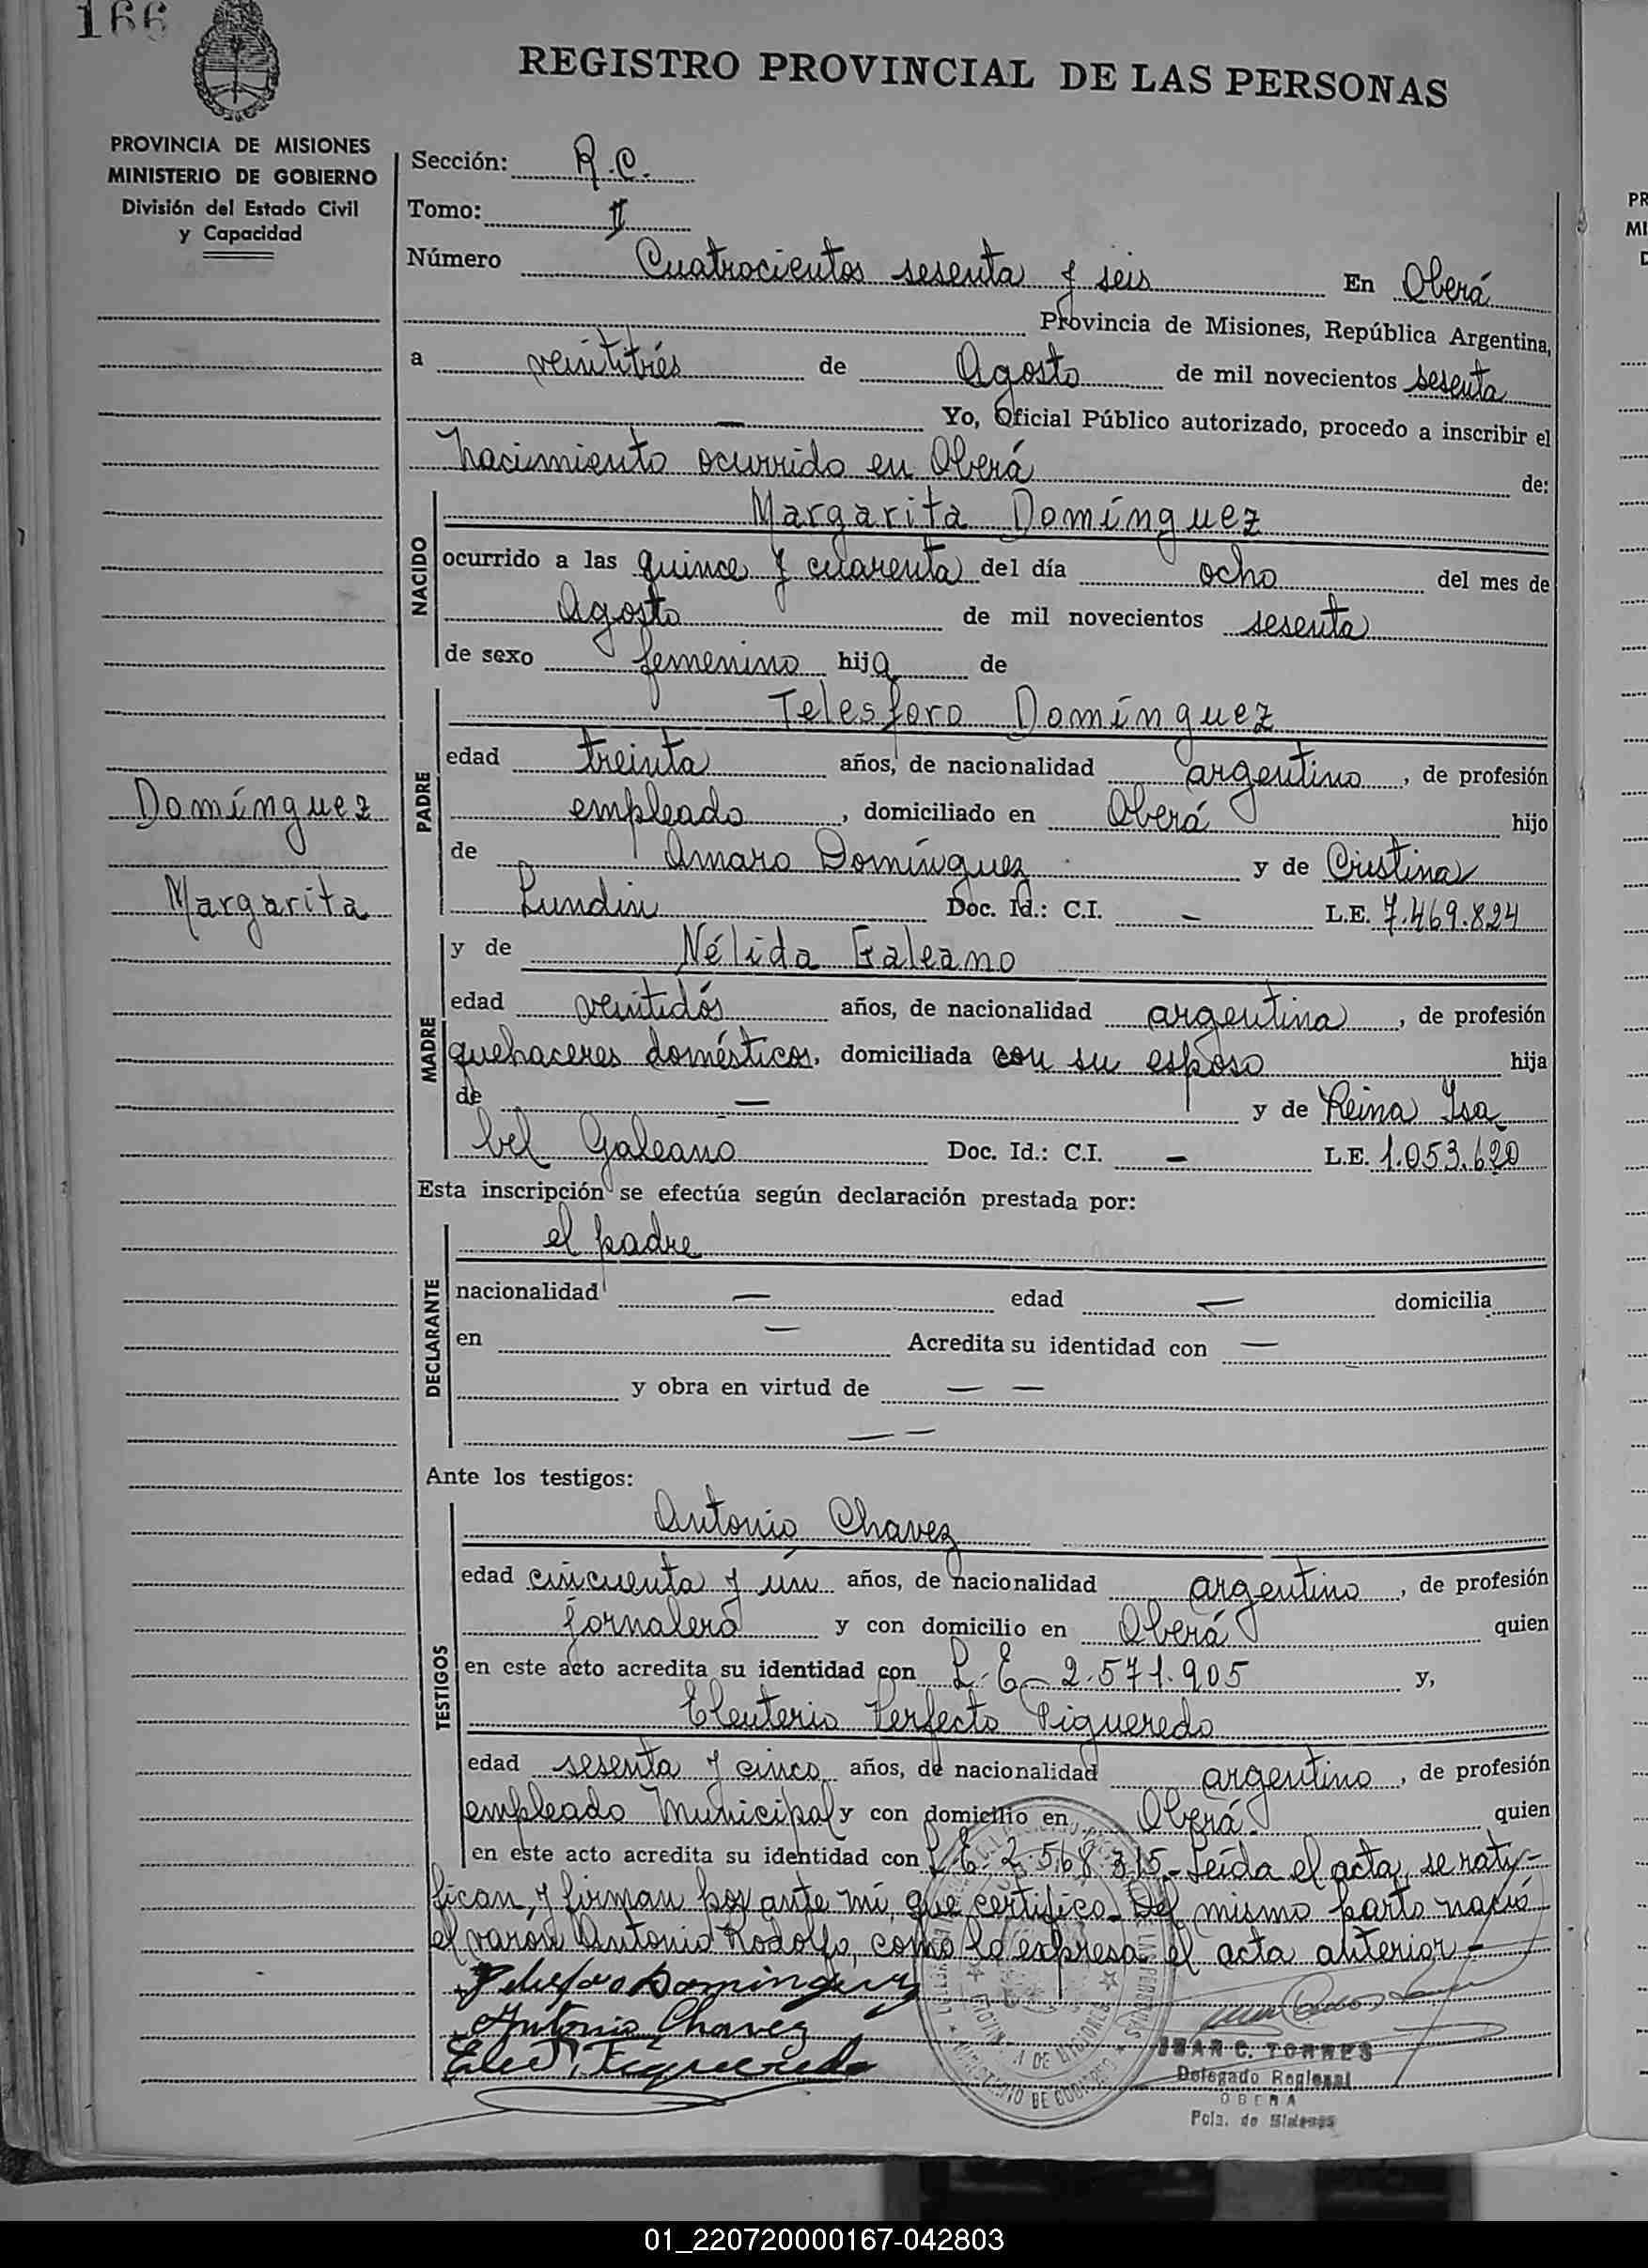 166
REGISTRO PROVINCIAL DE LAS PERSONAS
PROVINCIA DE MISIONES
MINISTERIO DE GOBIERNO
División del Estado Civil
y Capacidad
Sección: R.C.
Tomo: II
Número Cuatrocientos sesenta y seis En Oberá
Provincia de Misiones, República Argentina,
a veintitrés de Agosto de mil novecientos sesenta
— Yo, Oficial Público autorizado, procedo a inscribir el
nacimiento ocurrido en Oberá de:
NACIDO
Margarita Domínguez
ocurrido a las quince y cuarenta del día ocho del mes de
Agosto de mil novecientos sesenta
de sexo femenino hija de
PADRE
Telesforo Domínguez
edad treinta años, de nacionalidad argentino, de profesión
empleado, domiciliado en Oberá hijo
de Amaro Domínguez y de Cristina
Lundin Doc. Id.: C.I. — L.E. 7.469.824
Domínguez
Margarita
MADRE
y de Nélida Galeano
edad veintidós años, de nacionalidad argentina, de profesión
quehaceres domésticos, domiciliada con su esposo hija
de — y de Reina Isa
bel Galeano Doc. Id.: C.I. — L.E. 1.053.620
Esta inscripción se efectúa según declaración prestada por:
DECLARANTE
el padre
nacionalidad — edad — domicilia
en — Acredita su identidad con —
y obra en virtud de — —
— —
Ante los testigos:
TESTIGOS
Antonio Chavez
edad cincuenta y ún años, de nacionalidad argentino, de profesión
jornalero y con domicilio en Oberá quien
en este acto acredita su identidad con L.E- 2.571.905 y,
Eleuterio Perfecto Piqueredo
edad sesenta y cinco años, de nacionalidad argentino, de profesión
empleado Municipal y con domicilio en Oberá. quien
en este acto acredita su identidad con L.E- 2.568.315- Leída el acta, se raty-
fican, y firman por ante mí, que certifico- Del mismo parto nació
el varón Antonio Rodolfo, como lo expresa el acta anterior-
Telesforo Dominguez
Antonio Chavez
JUAN C. TORRES
Delegado Regional
OBERA
Pcia. de Misiones
01_220720000167-042803